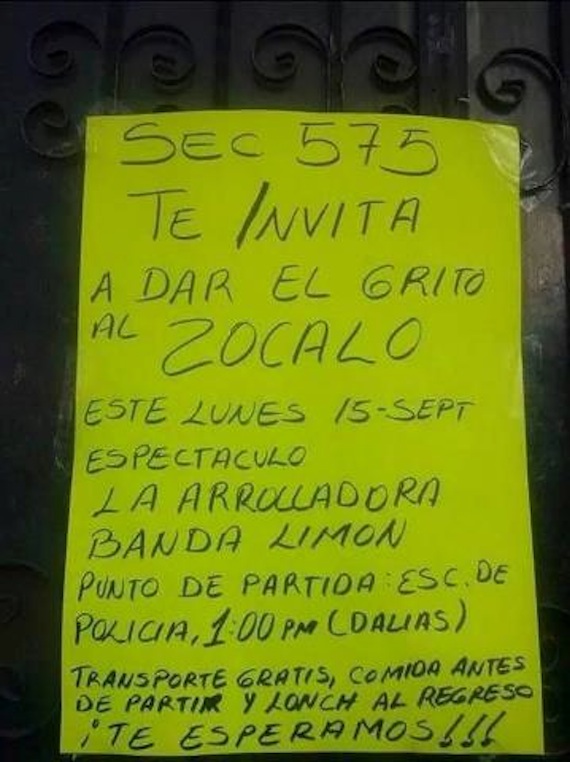 SEC 575
TE INVITA
A DAR EL GRITO
AL ZOCALO
ESTE LUNES 15-SEPT
ESPECTACULO
LA ARROLLADORA
BANDA LIMON
PUNTO DE PARTIDA: ESC. DE
POLICIA, 1:00 PM (DALIAS)
TRANSPORTE GRATIS, COMIDA ANTES
DE PARTIR Y LONCH AL REGRESO
¡TE ESPERAMOS!!!